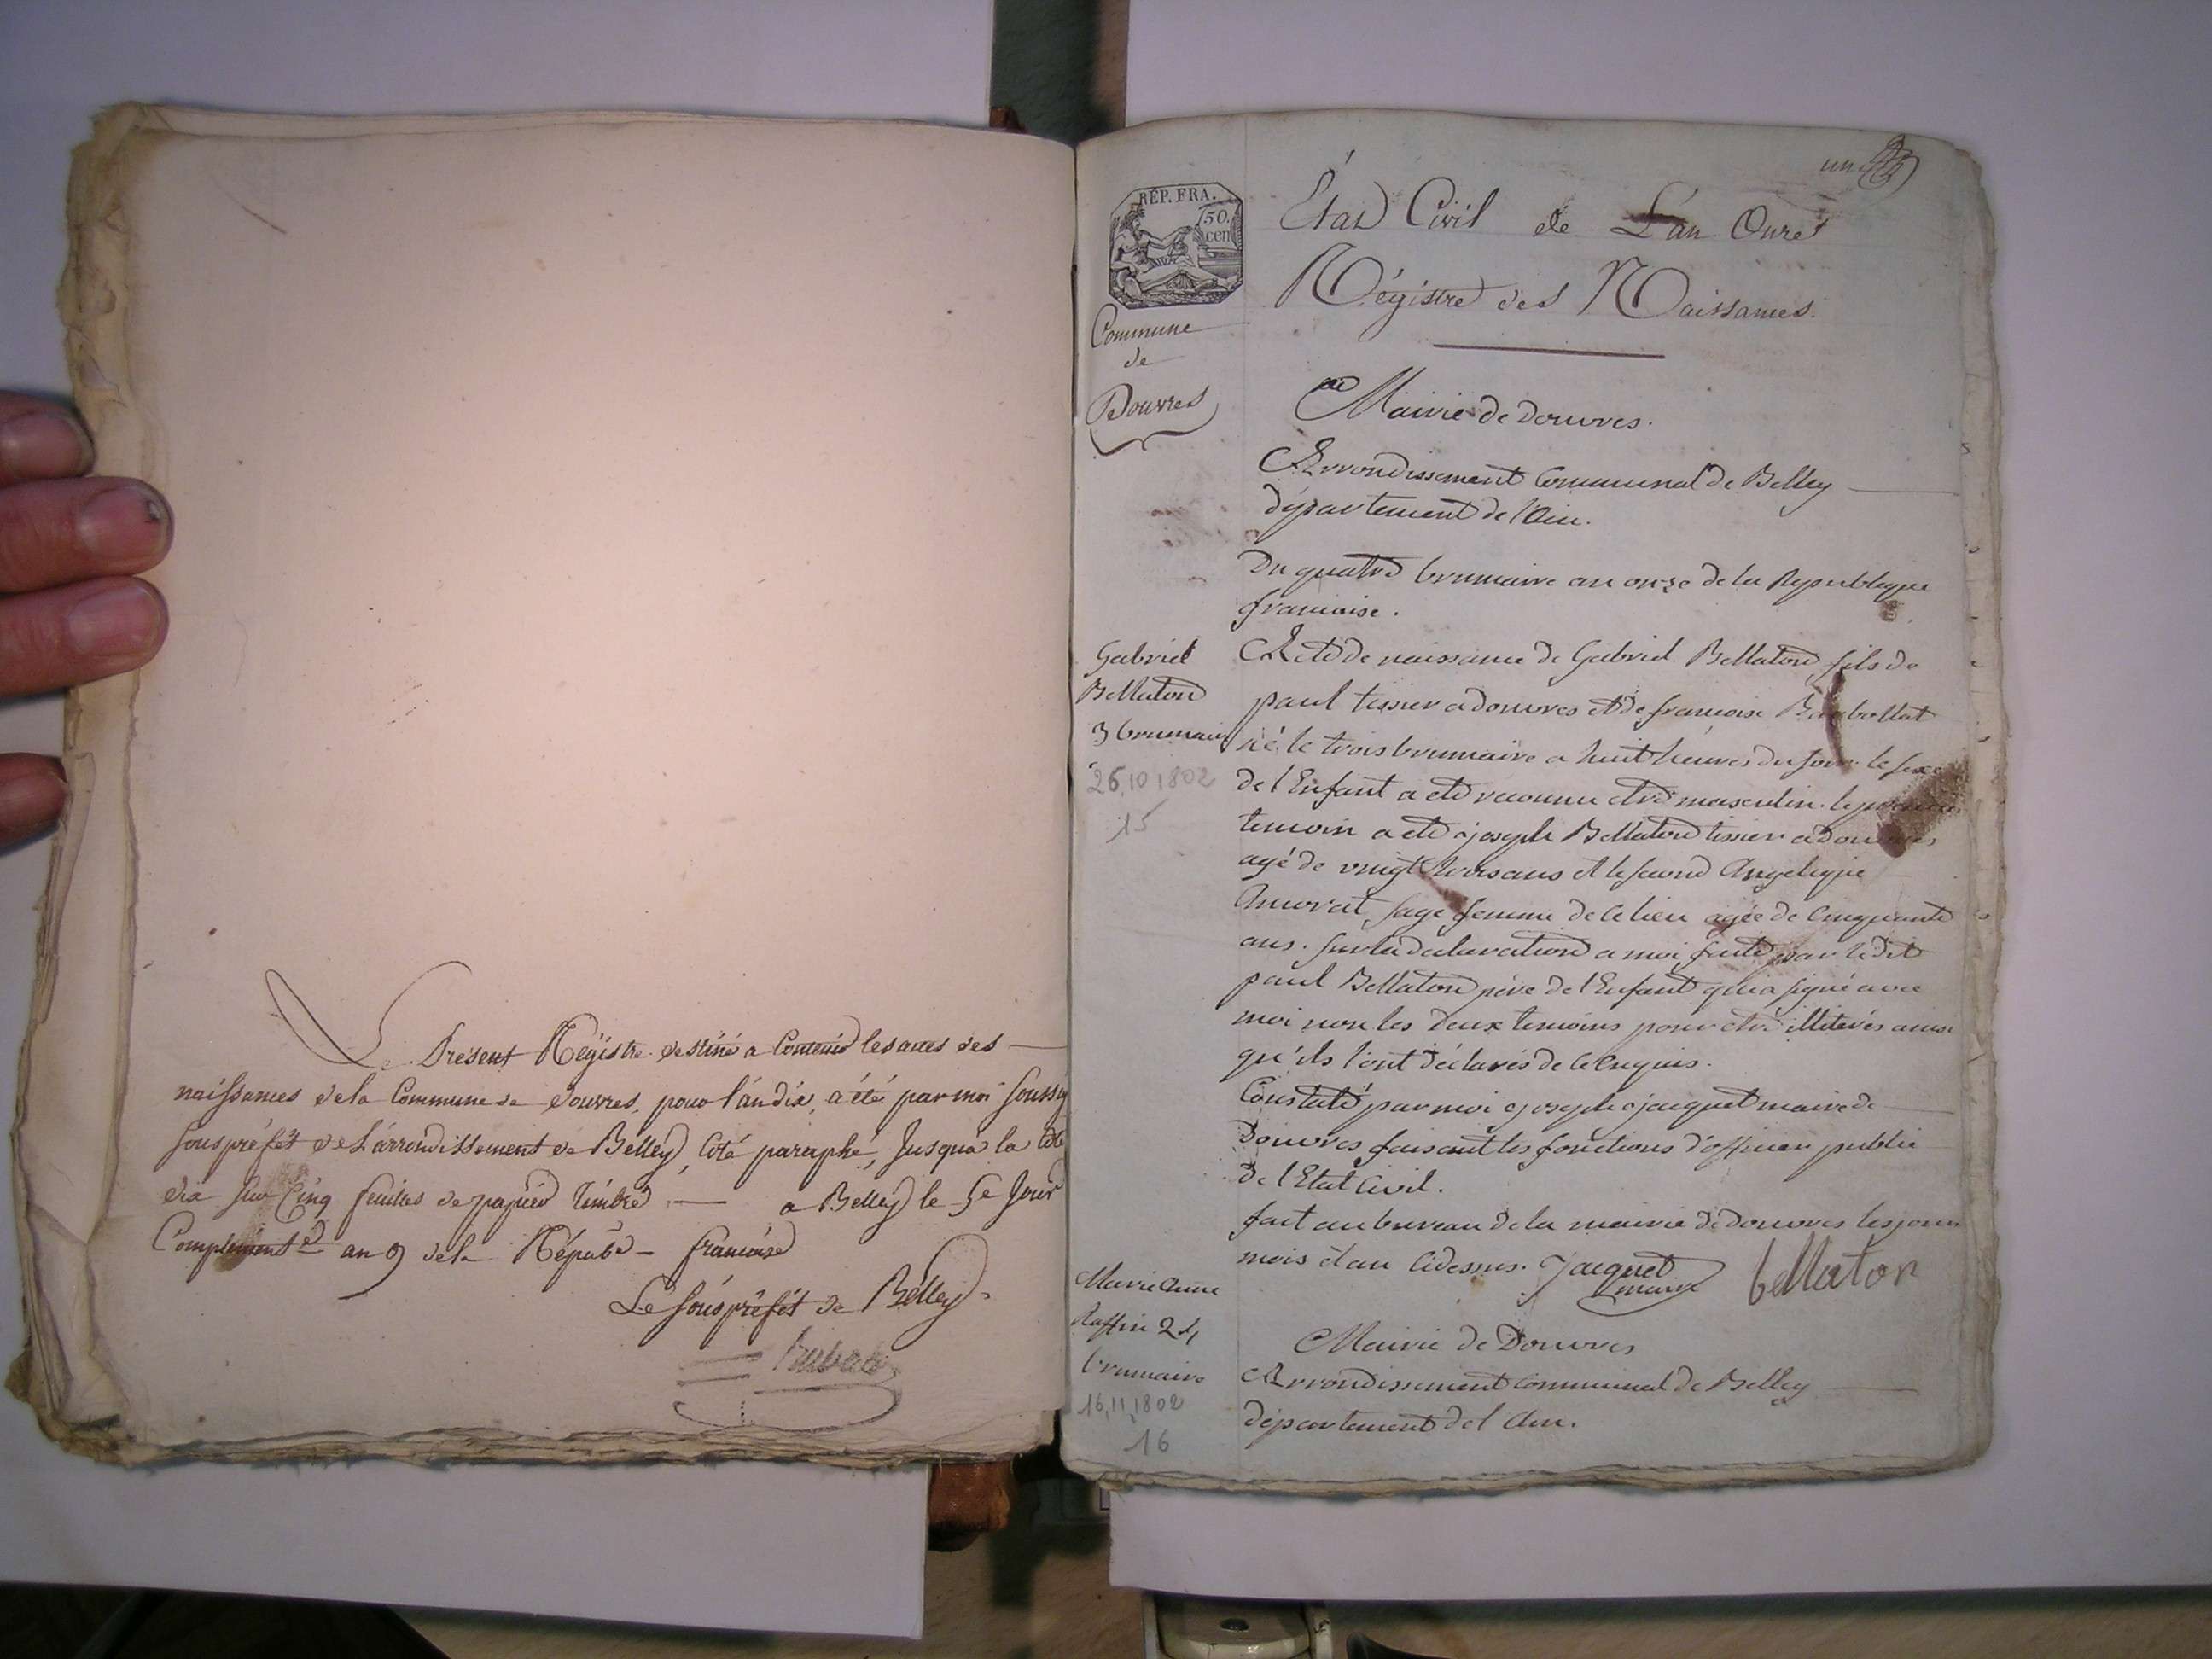 Le Present Régistre destiné a Contenir les actes des
naissances de la Commune de douvres, pour l'an dix, a été par moi soussig
sous préfét de L'arrondissement de Belley, coté paraphé, Jusqua la cote
dix sur Cinq feuilles de papier timbré — a Belley le 5e Jour
Complément.e an 9 de la Répub. francaise
Le sous préfét de Belley
un
RÉP. FRA.
50.
cen
État Civil de L'an Onze
Régistre des Naissances.
Commune
de
Douvres
Mairie de Douvres.
Arrondissement Communal de Belley
département de l'Ain.
Du quatre brumaire an onze de la Republique
francaise.
Gabriel
Bellaton
3 brumaire
26.10.1802
15
Acte de naissance de Gabriel Bellaton fils de
paul tissier a douvres et de francoise
né le trois brumaire a huit heures du soir. le sexe
de l'Enfant a eté reconnu etre masculin. le premier
temoin a eté joseph Bellaton tissier a douvres
agé de vingt trois ans et le second Angelique
sage femme de ce lieu agée de cinquante
ans. sur la declaration a moi faite par ledit
paul Bellaton pere de l'Enfant qui a signé avec
moi non les deux temoins pour etre illiterés ainsi
qu'ils l'ont déclarés de ce enquis.
Constaté par moi joseph jacquet maire de
Douvres faisant les fonctions d'officier public
de l'Etat Civil.
fait au bureau de la mairie de Douvres les jour
mois et an cidessus. Jacquet maire bellaton
Marie Anne
Raffin 24
brumaire
16.11.1802
16
Mairie de Douvres
Arrondissement communal de Belley
département de l'Ain.